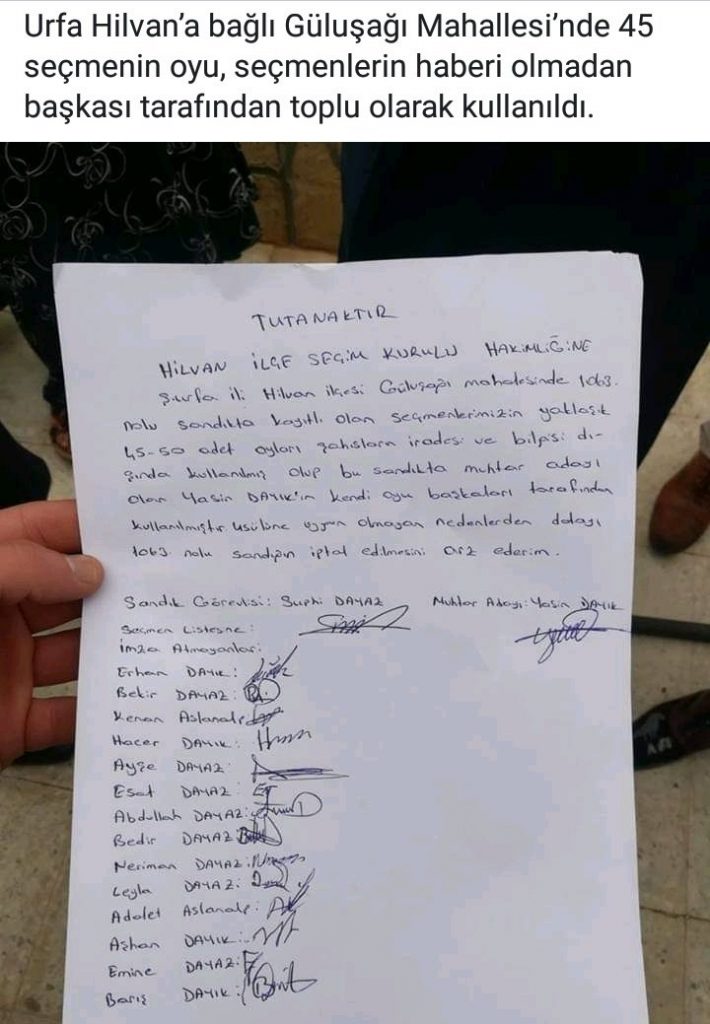 Urfa Hilvan’a bağlı Güluşağı Mahallesi’nde 45
seçmenin oyu, seçmenlerin haberi olmadan
başkası tarafından toplu olarak kullanıldı.
TUTANAKTIR
HİLVAN İLÇE SEÇİM KURULU HAKİMLİĞİNE
Ş.urfa ili Hilvan ilçesi Gülüşağı mahalesinde 1063.
nolu sandıkta kayıtlı olan seçmenlerimizin yaklaşık
45-50 adet oyları şahısların iradesi ve bilgisi dı-
şında kullanılmış olup bu sandıkta muhtar adayı
olan Yasin DAYIK'ın kendi oyu başkaları tarafından
kullanılmıştır. usülüne uygun olmayan nedenlerden dolayı
1063 nolu sandığın iptal edilmesini arz ederim.
Sandık Görevlisi: Suphi DAYAZ Muhtar Adayı: Yasin DAYIK
Seçmen Listesine:
İmza Atmayanlar:
Erhan DAYIK:
Bekir DAYAZ:
Kenan Aslanalp:
Hacer DAYIK:
Ayşe DAYAZ:
Esat DAYAZ:
Abdullah DAYAZ:
Bedir DAYAZ:
Neriman DAYAZ:
Leyla DAYAZ:
Adalet Aslanalp:
Aşhan DAYIK:
Emine DAYAZ:
Barış DAYIK: